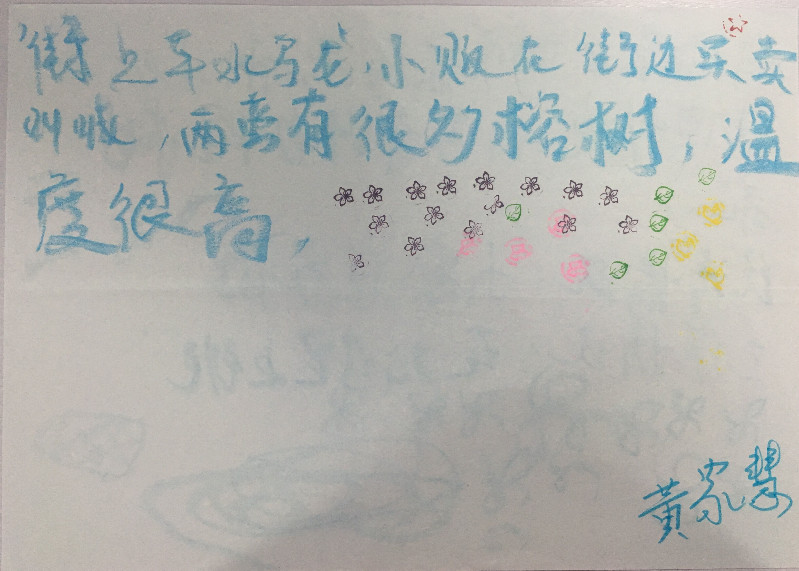 街上车水马龙,小贩在街边买卖
叫喊,两旁有很多榕树,温
度很高,
黄家慧